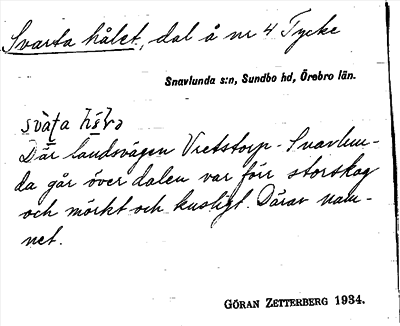 Svarta hålet, dal å nr 4 Tycke
Snavlunda s:n, Sundbo hd, Örebro län.
Där landsvägen Vretstorp - Snavlun-
da går över dalen var förr storskog
och mörkt och kusligt. Därav nam-
net.
GÖRAN ZETTERBERG 1934.